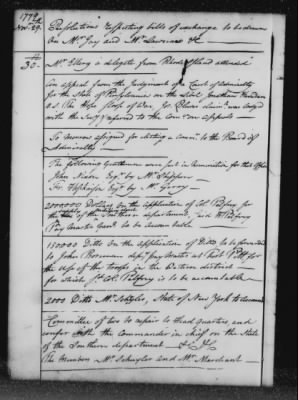 1779
Nov. 29. Resolutions respecting bills of exchange to be drawn
on Mr. Jay and Mr. Laurens &c
30. Mr. Ellery a delegate from Rhode Island attended
An appeal from the Judgment of a Court of Admiralty
for the State of Pennsylvania on the Libel Jonathan
vs. the Ship Sloop of War, claim was lodged
with the Secy & referred to the Comee on appeals
To morrow assigned for electing a commr. to the Board of
Admiralty
The following Gentlemen were put in Nomination for this Office
John Esqr. by Mr.
Esqr. by Mr. Gerry
2000000 Dollars on the application of Col Palfrey for
the use of the Southern department, and
Pay Master Genl. to be accountable
150000 Ditto on the application of Ditto to be forwarded
to John Boreman depy. pay Master at Fort Pitt for
the use of the troops in the Western district
for which sd. Col. Palfrey is to be accountable
2000 Ditto Mr. State of New York to be accountable
Committee of two to repair to Head quarters, and
confer with the Commander in chief on the State
of the Southern department &c &c
The members Mr. Schuyler and Mr. Marchant